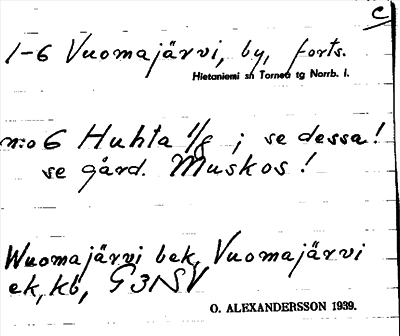 C
1-6 Vuomajärvi, by, forts.
Hietaniemi sn Torneå tg Norrb. l.
n:o 6 Huhta 1/8 ; se dessa!
se gård. Muskos!
Wuomajärvi bek, Vuomajärvi
ek, kb, G3NSV
O. ALEXANDERSSON 1939.